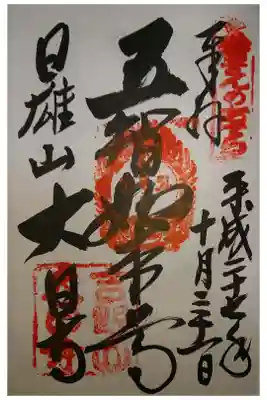 奉拝
平成二十七年
十月三十一日
五智如来
日雄山
大日寺